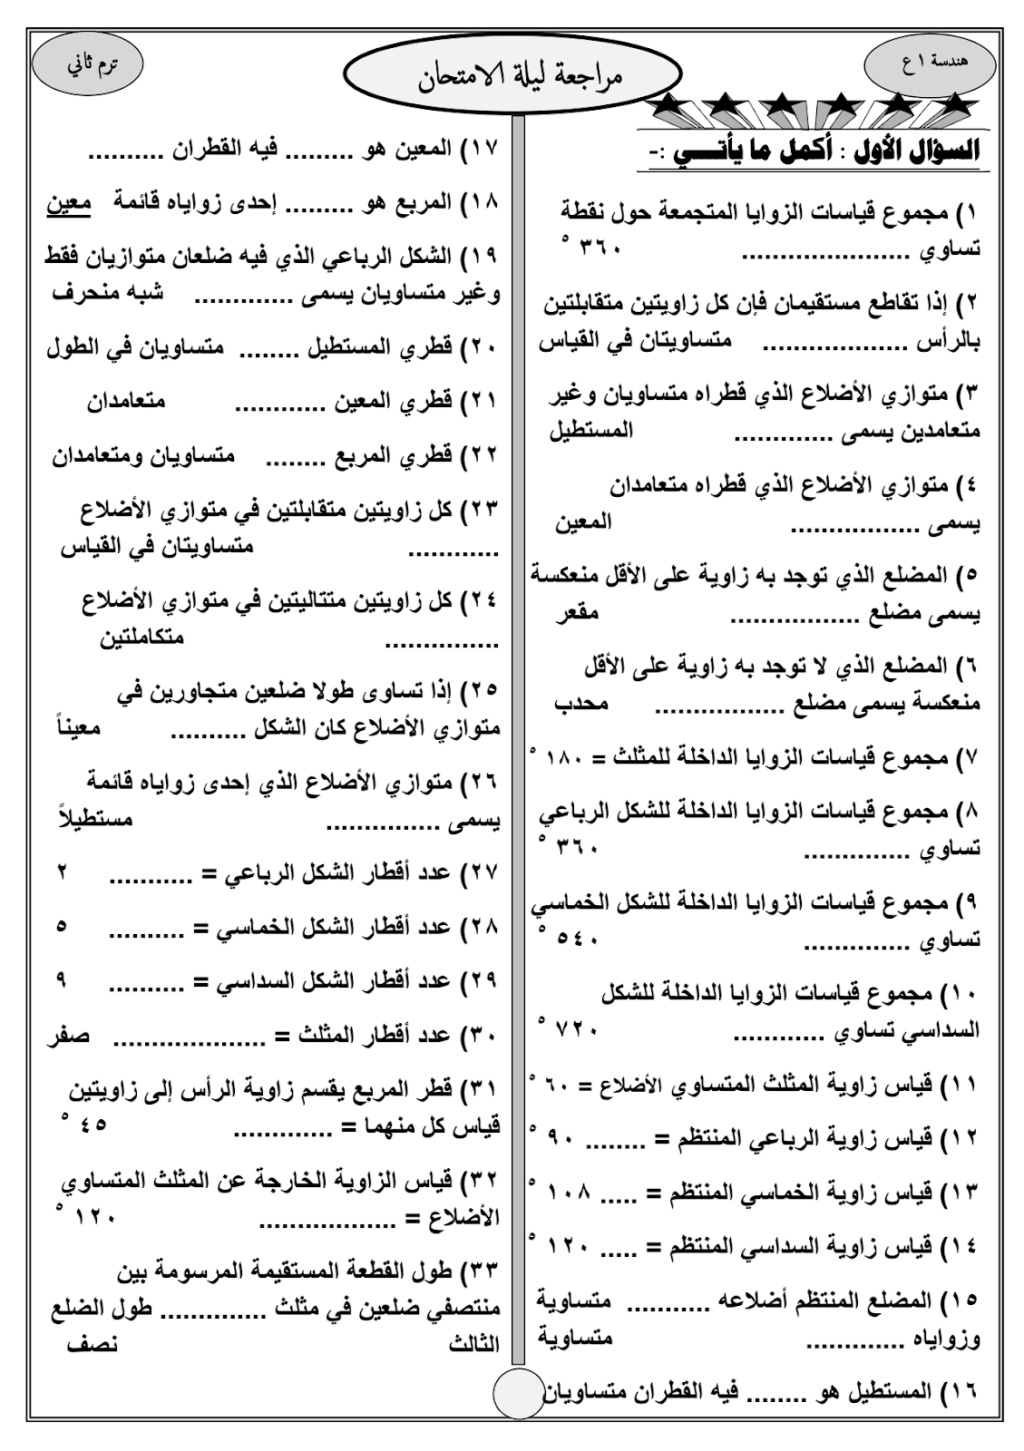 هندسة ١ ع
مراجعة ليلة الامتحان
ترم ثاني
السؤال الأول : أكمل ما يأتـــي :-
١) مجموع قياسات الزوايا المتجمعة حول نقطة
تساوي ...................... ٣٦٠ °
٢) إذا تقاطع مستقيمان فإن كل زاويتين متقابلتين
بالرأس ................... متساويتان في القياس
٣) متوازي الأضلاع الذي قطراه متساويان وغير
متعامدين يسمى ............. المستطيل
٤) متوازي الأضلاع الذي قطراه متعامدان
يسمى ................. المعين
٥) المضلع الذي توجد به زاوية على الأقل منعكسة
يسمى مضلع ................. مقعر
٦) المضلع الذي لا توجد به زاوية على الأقل
منعكسة يسمى مضلع ................. محدب
٧) مجموع قياسات الزوايا الداخلة للمثلث = ١٨٠ °
٨) مجموع قياسات الزوايا الداخلة للشكل الرباعي
تساوي .............. ٣٦٠ °
٩) مجموع قياسات الزوايا الداخلة للشكل الخماسي
تساوي .............. ٥٤٠ °
١٠) مجموع قياسات الزوايا الداخلة للشكل
السداسي تساوي ............ ٧٢٠ °
١١) قياس زاوية المثلث المتساوي الأضلاع = ٦٠ °
١٢) قياس زاوية الرباعي المنتظم = ........ ٩٠ °
١٣) قياس زاوية الخماسي المنتظم = ..... ١٠٨ °
١٤) قياس زاوية السداسي المنتظم = ..... ١٢٠ °
١٥) المضلع المنتظم أضلاعه ........... متساوية
وزواياه ............. متساوية
١٦) المستطيل هو ........ فيه القطران متساويان
١٧) المعين هو ......... فيه القطران ..........
١٨) المربع هو ......... إحدى زواياه قائمة معين
١٩) الشكل الرباعي الذي فيه ضلعان متوازيان فقط
وغير متساويان يسمى ............. شبه منحرف
٢٠) قطري المستطيل ........ متساويان في الطول
٢١) قطري المعين ............ متعامدان
٢٢) قطري المربع ........ متساويان ومتعامدان
٢٣) كل زاويتين متقابلتين في متوازي الأضلاع
............ متساويتان في القياس
٢٤) كل زاويتين متتاليتين في متوازي الأضلاع
............... متكاملتين
٢٥) إذا تساوى طولا ضلعين متجاورين في
متوازي الأضلاع كان الشكل .......... معيناً
٢٦) متوازي الأضلاع الذي إحدى زواياه قائمة
يسمى ............... مستطيلاً
٢٧) عدد أقطار الشكل الرباعي = ........... ٢
٢٨) عدد أقطار الشكل الخماسي = .......... ٥
٢٩) عدد أقطار الشكل السداسي = .......... ٩
٣٠) عدد أقطار المثلث = .................... صفر
٣١) قطر المربع يقسم زاوية الرأس إلى زاويتين
قياس كل منهما = ............. ٤٥ °
٣٢) قياس الزاوية الخارجة عن المثلث المتساوي
الأضلاع = .................. ١٢٠ °
٣٣) طول القطعة المستقيمة المرسومة بين
منتصفي ضلعين في مثلث .............. طول الضلع
الثالث نصف